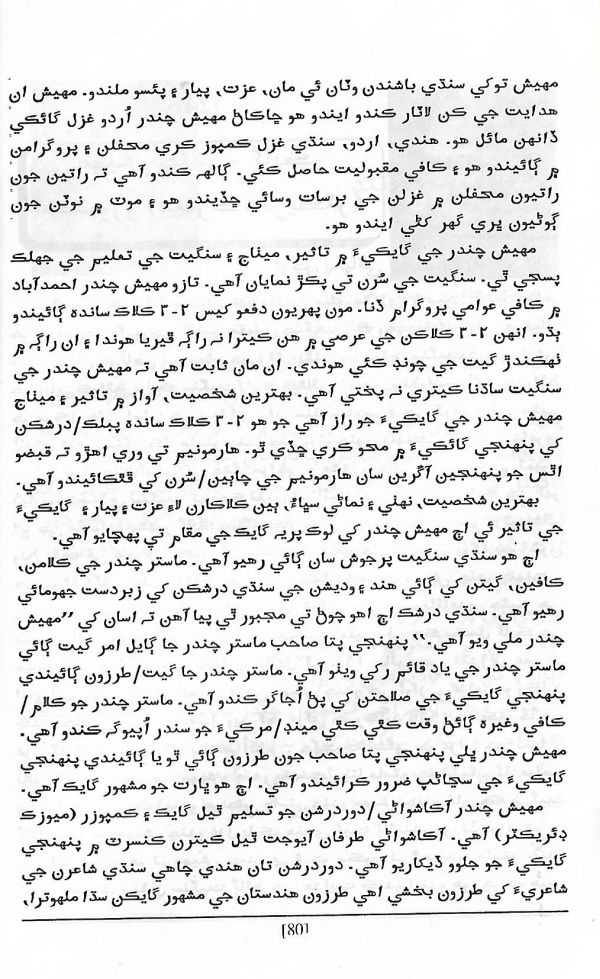 مهيش توکي سنڌي باشندن وٽان ئي مان، عزت، پيار ۽ پئسو ملندو. مهيش ان
هدايت جي ڪن لاٽار ڪندو ايندو هو ڇاڪاڻ مهيش چندر اُردو غزل گائڪي
ڏانهن مائل هو. هندي، اردو، سنڌي غزل ڪمپوز ڪري محفلن ۽ پروگرامن
۾ ڳائيندو هو ۽ ڪافي مقبوليت حاصل ڪئي. ڳالهہ ڪندو آهي تہ راتين جون
راتيون محفلن ۾ غزلن جي برسات وسائي ڇڏيندو هو ۽ موٽ ۾ نوٽن جون
ڳوٿيون ڀري گهر کڻي ايندو هو.
مهيش چندر جي گايڪيءَ ۾ تاثير، ميٺاج ۽ سنگيت جي تعليم جي جهلڪ
پسجي ٿي. سنگيت جي سُرن تي پڪڙ نمايان آهي. تازو مهيش چندر احمدآباد
۾ ڪافي عوامي پروگرام ڏنا. مون پهريون دفعو کيس ٢-٣ ڪلاڪ ساندہ ڳائيندو
ٻڌو. انهن ٢-٣ ڪلاڪن جي عرصي ۾ هن ڪيترا نہ راڳہ ڦيريا هوندا ۽ ان راڳہ ۾
ٺهڪندڙ گيت جي چونڊ ڪئي هوندي. ان مان ثابت آهي تہ مهيش چندر جي
سنگيت ساڌنا ڪيتري نہ پختي آهي. بهترين شخصيت، آواز ۾ تاثير ۽ ميٺاج
مهيش چندر جي گايڪيءَ جو راز آهي جو هو ٢-٣ ڪلاڪ ساندہ پبلڪ/درشڪن
کي پنهنجي گائڪيءَ ۾ محو ڪري ڇڏي ٿو. هارمونيم تي وري اهڙو تہ قبضو
اٿس جو پنهنجين آڱرين سان هارمونيم جي چاٻين/سُرن کي ٿڙڪائيندو آهي.
بهترين شخصيت، نهٺي ۽ نماڻي سڀاءُ، ٻين ڪلاڪارن لاءِ عزت ۽ پيار ۽ گايڪيءَ
جي تاثير ئي اڄ مهيش چندر کي لوڪ پريہ گايڪ جي مقام تي پهچايو آهي.
اڄ هو سنڌي سنگيت پرجوش سان ڳائي رهيو آهي. ماستر چندر جي ڪلامن،
ڪافين، گيتن کي ڳائي هند ۽ وديشن جي سنڌي درشڪن کي زبردست جهومائي
رهيو آهي. سنڌي درشڪ اڄ اهو چوڻ تي مجبور ٿي پيا آهن تہ اسان کي ”مهيش
چندر ملي ويو آهي.“ پنهنجي پتا صاحب ماستر چندر جا ڳايل امر گيت ڳائي
ماستر چندر جي ياد قائم رکي ويٺو آهي. ماستر چندر جا گيت/طرزون ڳائيندي
پنهنجي گايڪيءَ جي صلاحتن کي پڻ اُجاگر ڪندو آهي. ماستر چندر جو ڪلام/
ڪافي وغيره ڳائڻ وقت ڪٿي ڪٿي مينڊ/مرڪيءَ جو سندر اُپيوگہ ڪندو آهي.
مهيش چندر ڀلي پنهنجي پتا صاحب جون طرزون ڳائي ٿو يا ڳائيندي پنهنجي
گايڪيءَ جي سڃاڻپ ضرور ڪرائيندو آهي. اڄ هو ڀارت جو مشهور گايڪ آهي.
مهيش چندر آڪاشواڻي/دوردرشن جو تسليم ٿيل گايڪ ۽ ڪمپوزر (ميوزڪ
ڊئريڪٽر) آهي. آڪاشواڻي طرفان آيوجت ٿيل ڪيترن ڪنسرٽ ۾ پنهنجي
گايڪيءَ جو جلوو ڏيکاريو آهي. دوردرشن تان هندي چاهي سنڌي شاعرن جي
شاعريءَ کي طرزون بخشي اهي طرزون هندستان جي مشهور گايڪن سڌا ملهوترا،
[80]